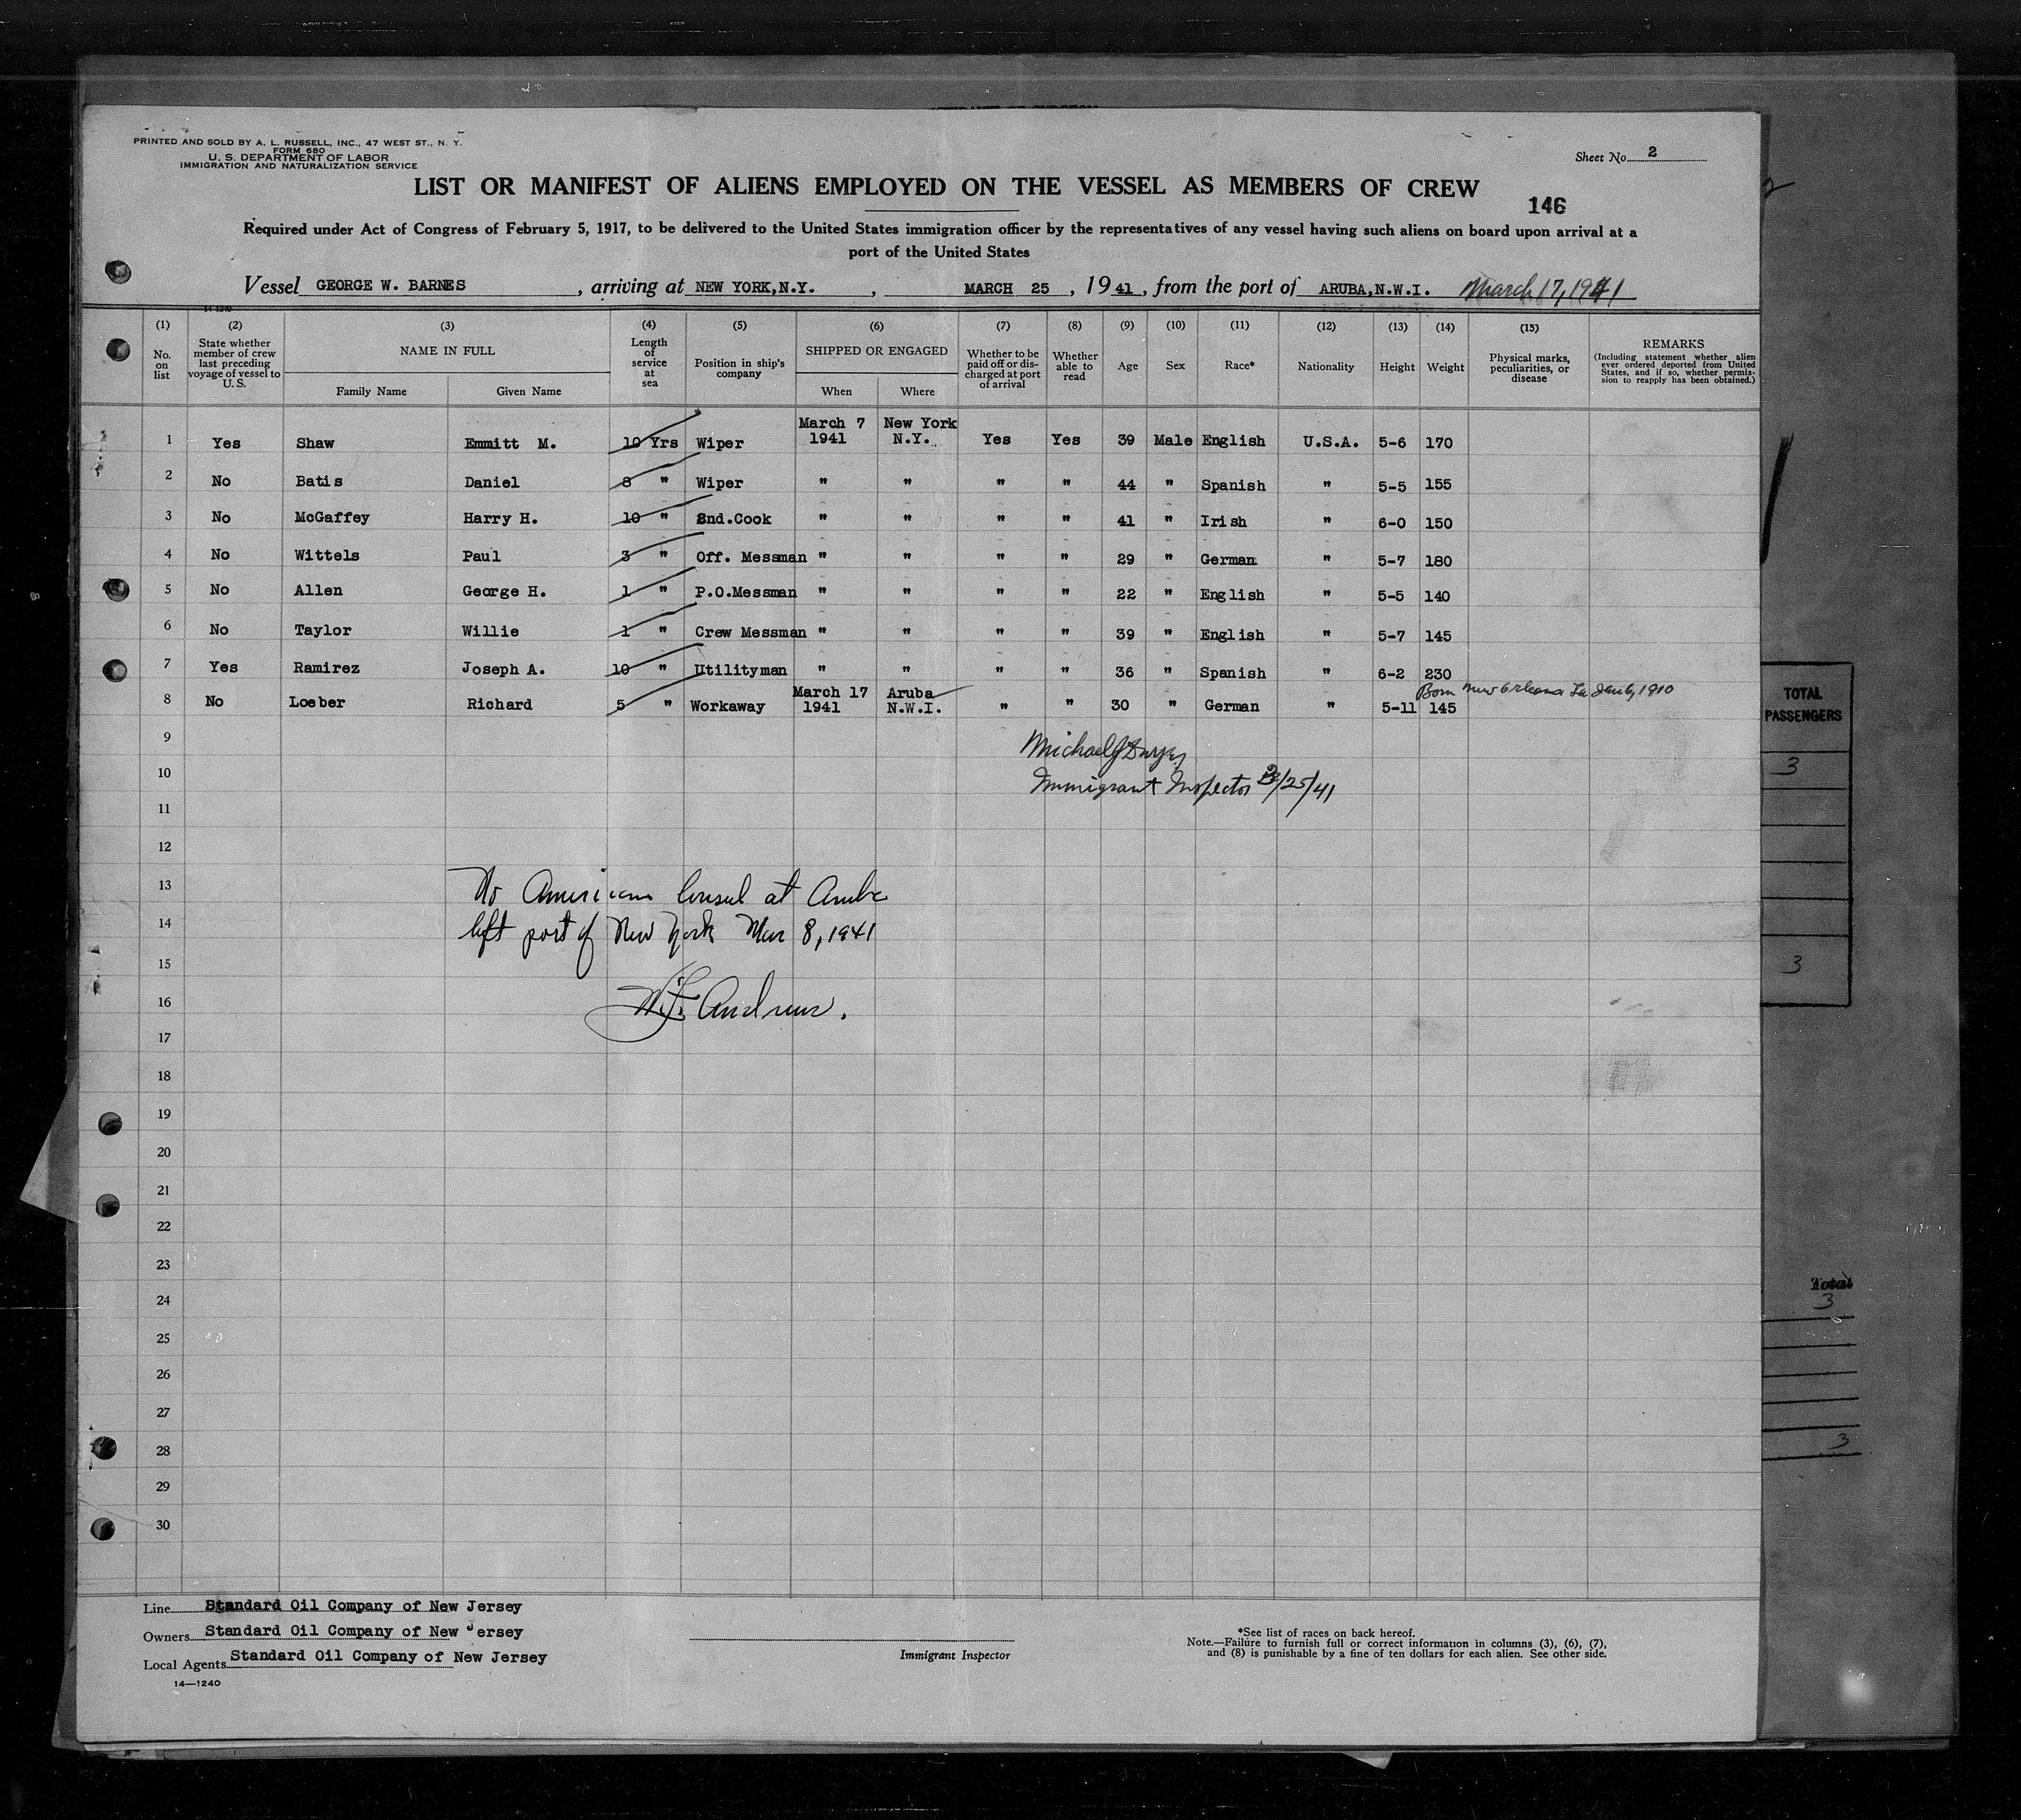 PRINTED AND SOLD BY A. L. RUSSELL, INC., 47 WEST ST., N. Y.
FORM 680
U. S. DEPARTMENT OF LABOR
IMMIGRATION AND NATURALIZATION SERVICE
Sheet No. 2
LIST OR MANIFEST OF ALIENS EMPLOYED ON THE VESSEL AS MEMBERS OF CREW
146
Required under Act of Congress of February 5, 1917, to be delivered to the United States immigration officer by the representatives of any vessel having such aliens on board upon arrival at a
port of the United States
Vessel GEORGE W. BARNES, arriving at NEW YORK,N.Y., MARCH 25, 1941, from the port of ARUBA,N.W.I. March 17, 1941
14-1240
(1) (2) (3) (4) (5) (6) (7) (8) (9) (10) (11) (12) (13) (14) (15)
No. on list
State whether member of crew last preceding voyage of vessel to U. S.
NAME IN FULL
Family Name
Given Name
Length of service at sea
Position in ship's company
SHIPPED OR ENGAGED
When
Where
Whether to be paid off or discharged at port of arrival
Whether able to read
Age
Sex
Race*
Nationality
Height
Weight
Physical marks, peculiarities, or disease
REMARKS
(Including statement whether alien ever ordered deported from United States, and if so, whether permission to reapply has been obtained.)
1 Yes Shaw Emmitt M. 10 Yrs Wiper March 7 1941 New York N.Y. Yes Yes 39 Male English U.S.A. 5-6 170
2 No Batis Daniel 8 " Wiper " " " " 44 " Spanish " 5-5 155
3 No McGaffey Harry H. 10 " 2nd.Cook " " " " 41 " Irish " 6-0 150
4 No Wittels Paul 3 " Off. Messman " " " " 29 " German " 5-7 180
5 No Allen George H. 1 " P.O.Messman " " " " 22 " English " 5-5 140
6 No Taylor Willie 1 " Crew Messman " " " " 39 " English " 5-7 145
7 Yes Ramirez Joseph A. 10 " Utilityman " " " " 36 " Spanish " 6-2 230
Born New Orleans La 1910
8 No Loeber Richard 5 " Workaway March 17 1941 Aruba N.W.I. " " 30 " German " 5-11 145
9
Michael J Dwyer
10
Immigrant Inspector 3/25/41
11
12
13
No American Consul at Aruba
14
left port of New York Mar 8, 1941
15
16
Andrews.
17
18
19
20
21
22
23
24
25
26
27
28
29
30
Line Standard Oil Company of New Jersey
Owners Standard Oil Company of New Jersey
Local Agents Standard Oil Company of New Jersey
14—1240
Immigrant Inspector
*See list of races on back hereof.
Note.—Failure to furnish full or correct information in columns (3), (6), (7),
and (8) is punishable by a fine of ten dollars for each alien. See other side.
TOTAL
PASSENGERS
3
3
Total
3
3